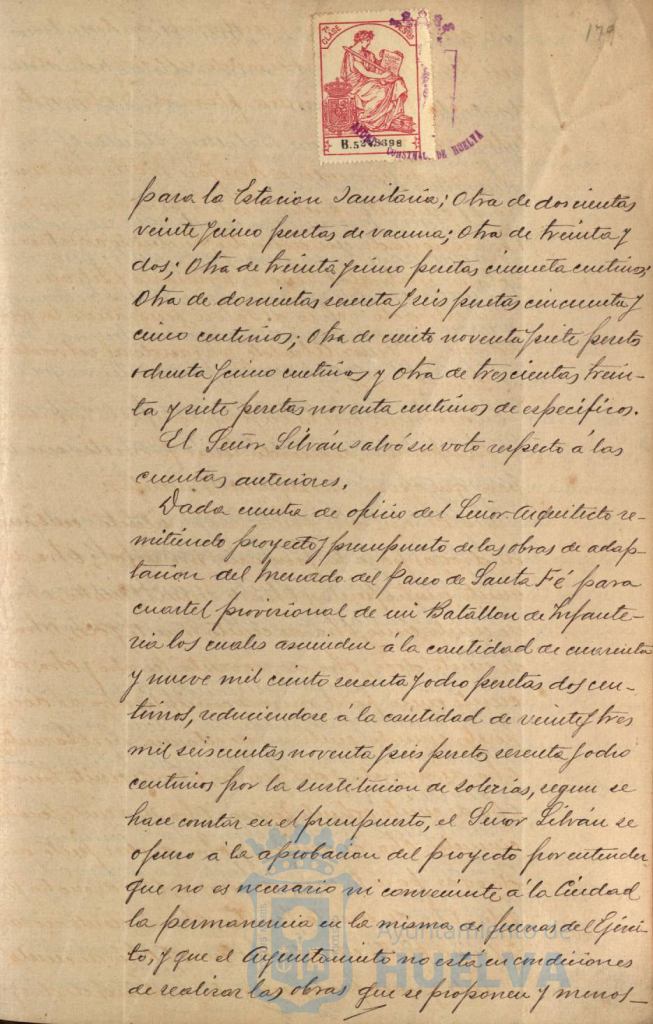 179
7ª CLASE
B.5249698
AYUNTº CONSTNAL. DE HUELVA
para la Estacion Sanitaria; Otra de doscientas
veinte y cinco pesetas de vacuna; Otra de treinta y
dos; Otra de treinta y cinco pesetas cincueta centimos;
Otra de doscientas setenta y seis pesetas cincuenta y
cinco centimos; Otra de ciento noventa y siete pesetas
ochenta y cinco centimos y Otra de trescientas trein-
ta y siete pesetas noventa centimos de especificos.
El Señor Silván salvó su voto respecto á las
cuentas anteriores.
Dada cuenta de oficio del Señor Arquitecto re-
mitiendo proyecto y presupuesto de las obras de adap-
tacion del Mercado del Paseo de Santa Fé para
cuartel provisional de un Batallon de Infante-
ria los cuales ascienden á la cantidad de cuarenta
y nueve mil ciento setenta y ocho pesetas dos cen-
timos, reduciendose á la cantidad de veinte y tres
mil seiscientas noventa y seis pesetas setenta y ocho
centimos por la sustitucion de solerias, segun se
hace constar en el presupuesto, el Señor Silván se
opuso á la aprobacion del proyecto por entender
que no es necesario ni conveniente á la Ciudad
la permanencia en la misma de fuerzas del Ejérci-
to, y que el Ayuntamiento no está en condiciones
de realizar las obras que se proponen y menos
Ayuntamiento de
HUELVA